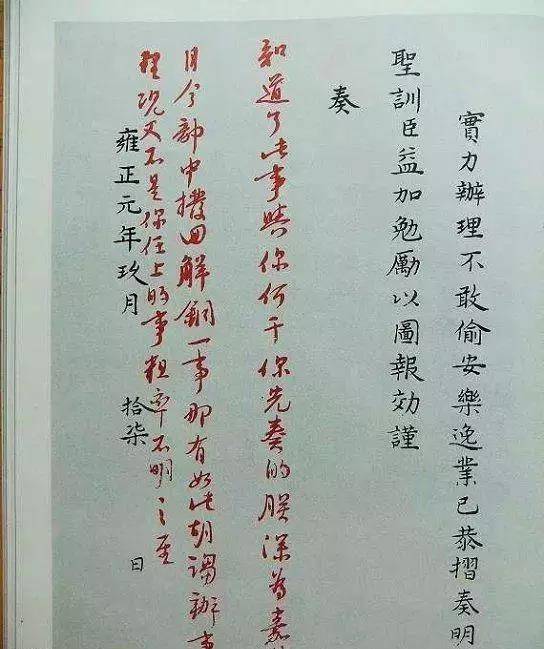 實力辦理不敢偷安樂逸業已恭摺奏明
聖訓臣益加勉勵以圖報効謹
奏
知道了此事與你何干你先奏的朕深為嘉
目今部中撥回解銅一事那有如此胡謅辦事
理況又不是你任上的事粗率不明之至
雍正元年玖月 拾柒 日